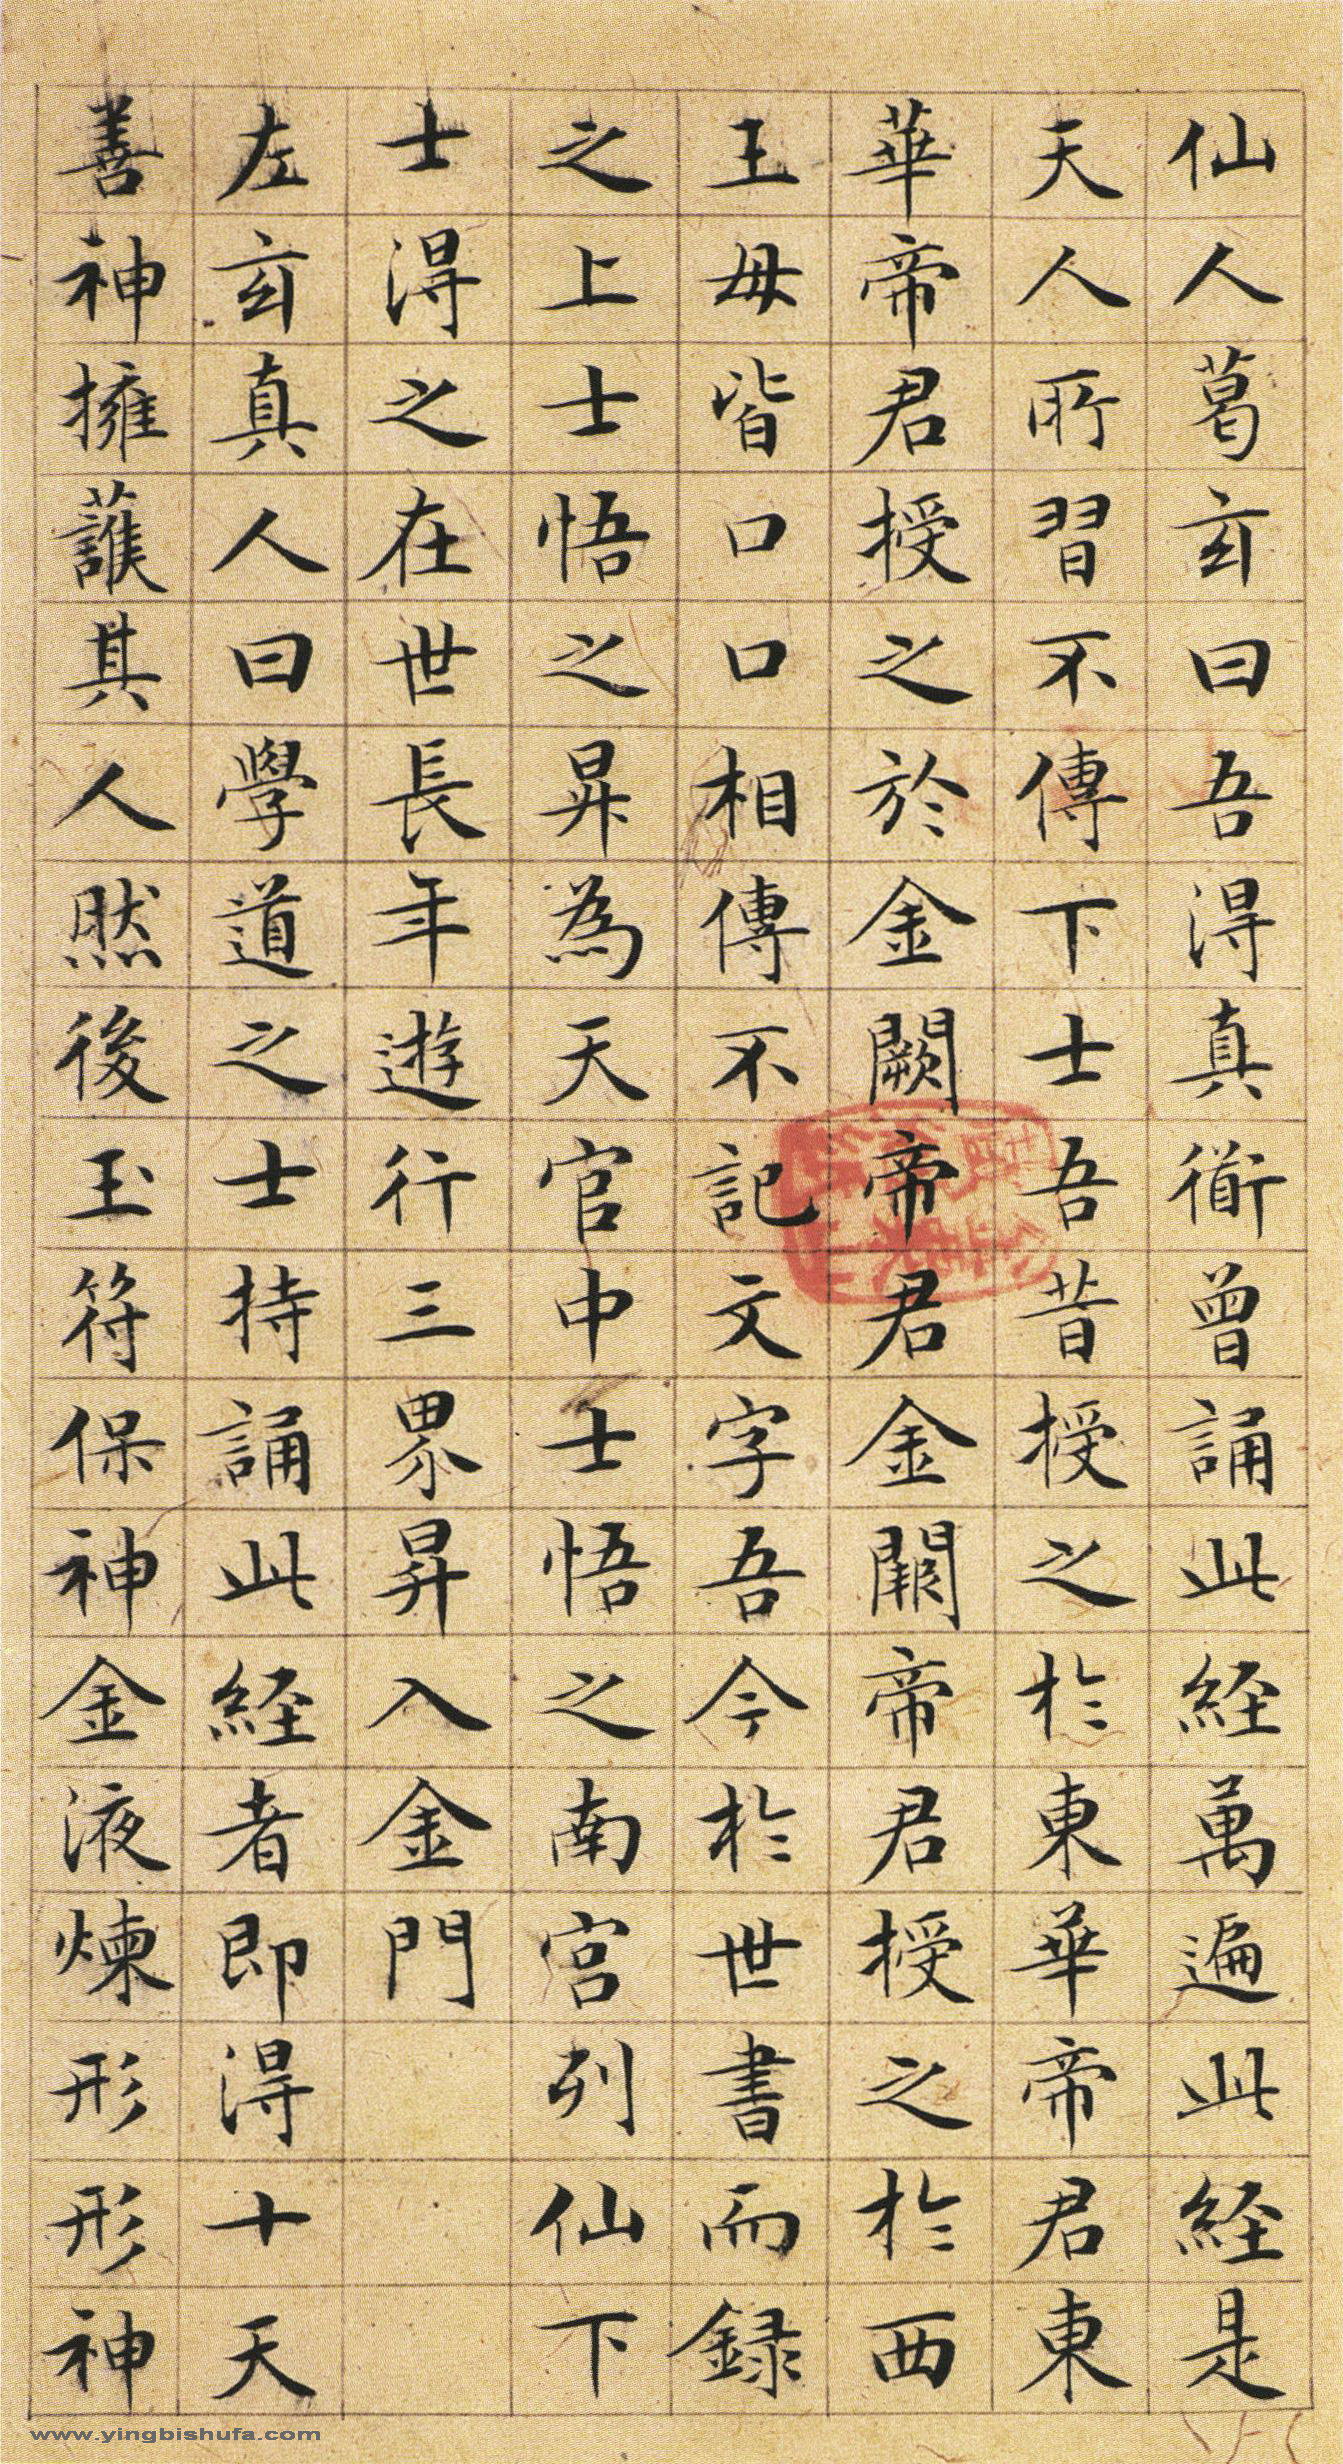 仙人葛玄曰吾淂真衜曾誦此経萬遍此経是
天人所習不傳下士吾昔授之扵東華帝君東
華帝君授之於金闕帝君金闕帝君授之扵西
王母皆口口相傳不記文字吾今扵世書而録
之上士悟之昇為天官中士悟之南宮列仙下
士淂之在世長年遊行三界昇入金門
左玄真人曰學道之士持誦此経者即淂十天
善神擁護其人然後玉符保神金液煉形形神
www.yingbishufa.com